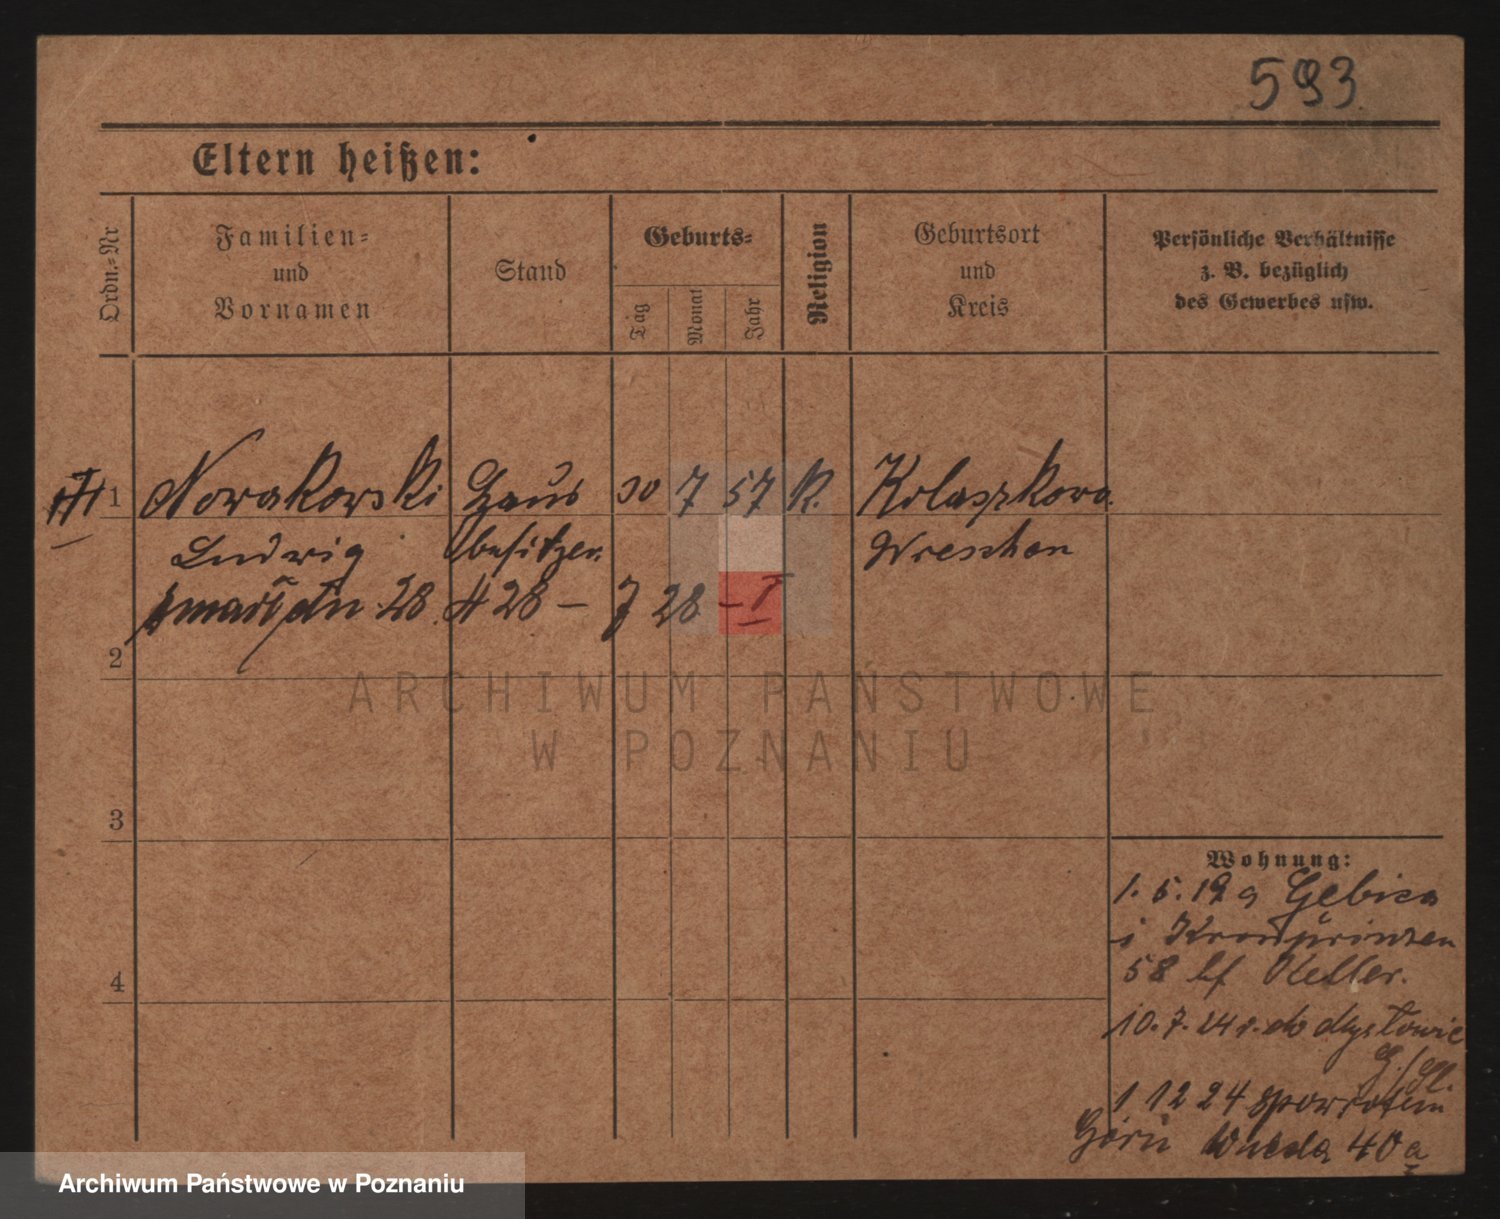 593
Eltern heißen:
Ordn.-Nr
Familien- und Vornamen
Stand
Geburts-
Tag
Monat
Jahr
Religion
Geburtsort und Kreis
Persönliche Verhältnisse z. B. bezüglich des Gewerbes usw.
1 Nowakowski Haus 30 7 57 K. Kolaszkowo
Ludwig besitzer Wreschen
zmarł dn 28 4 28 – J 28 – I
2
ARCHIWUM PAŃSTWOWE
W POZNANIU
3
Wohnung:
1. 5. 19 a Gebice
i Kronprinzen
58 lf Keller.
4
10. 7. 24 r. do
1 12 24 spowrotem
Górn Wilda 40a
Archiwum Państwowe w Poznaniu